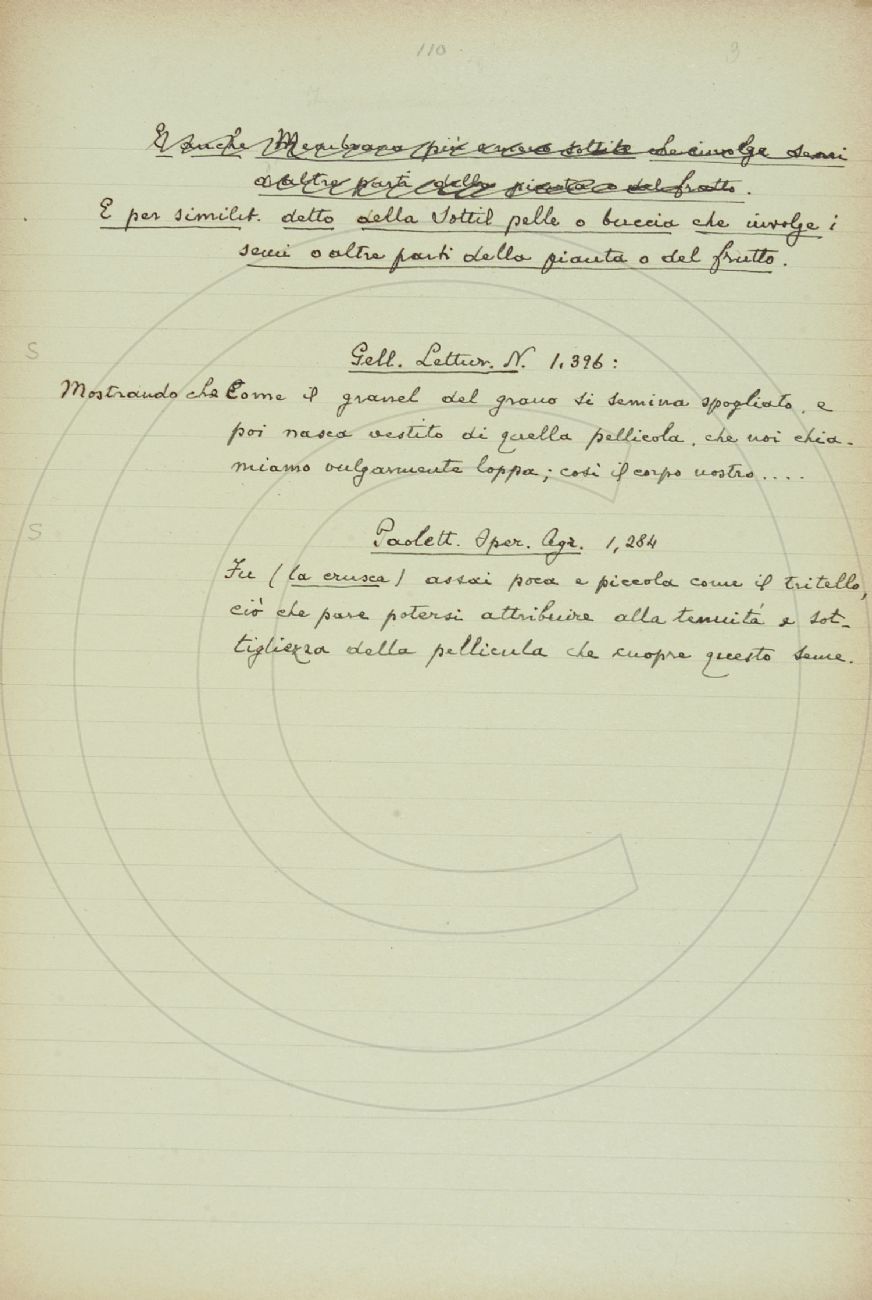 110 9
E anche Membrana più o meno sottile che involge semi
o altre parti della pianta o del frutto.
E per similit. detto della Sottil pelle o buccia che involge i
semi o altre parti della pianta o del frutto.
S
Gell. Lettur. N. 1.396:
Mostrando che Come il granel del grano si semina spogliato, e
poi nasca vestito di quella pellicola, che noi chia-
miamo vulgarmente loppa; così il corpo nostro....
S
Paolett. Oper. Agr. 1,284
Fu (la crusca) assai poca e piccola come il tritello,
ciò che pare potersi attribuire alla tenuità e sot-
tigliezza della pellicula che cuopre questo seme.